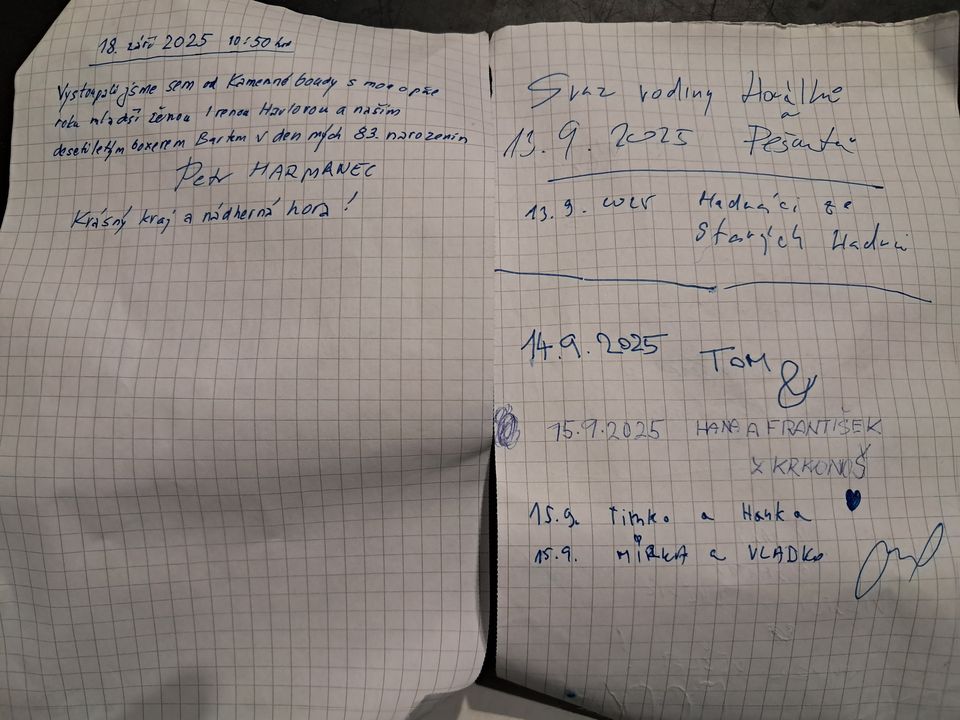 18. září 2025 10:50 hod
Vystoupali jsme sem od Kamenné boudy s mou o pře
roku mladší ženou Irenou Havlovou a naším
desetiletým boxerem Bartem v den mých 83. narozenin
Petr HARMANEC
Krásný kraj a nádherná hora!
Svaz rodiny
a
13.9.2025
13.9.
Starých
14.9.2025 TOM &
15.9.2025 HANA A FRANTIŠEK
Z KRKONOŠ
15.9. Timko a Hanka
15.9. MIRKA a VLADKO